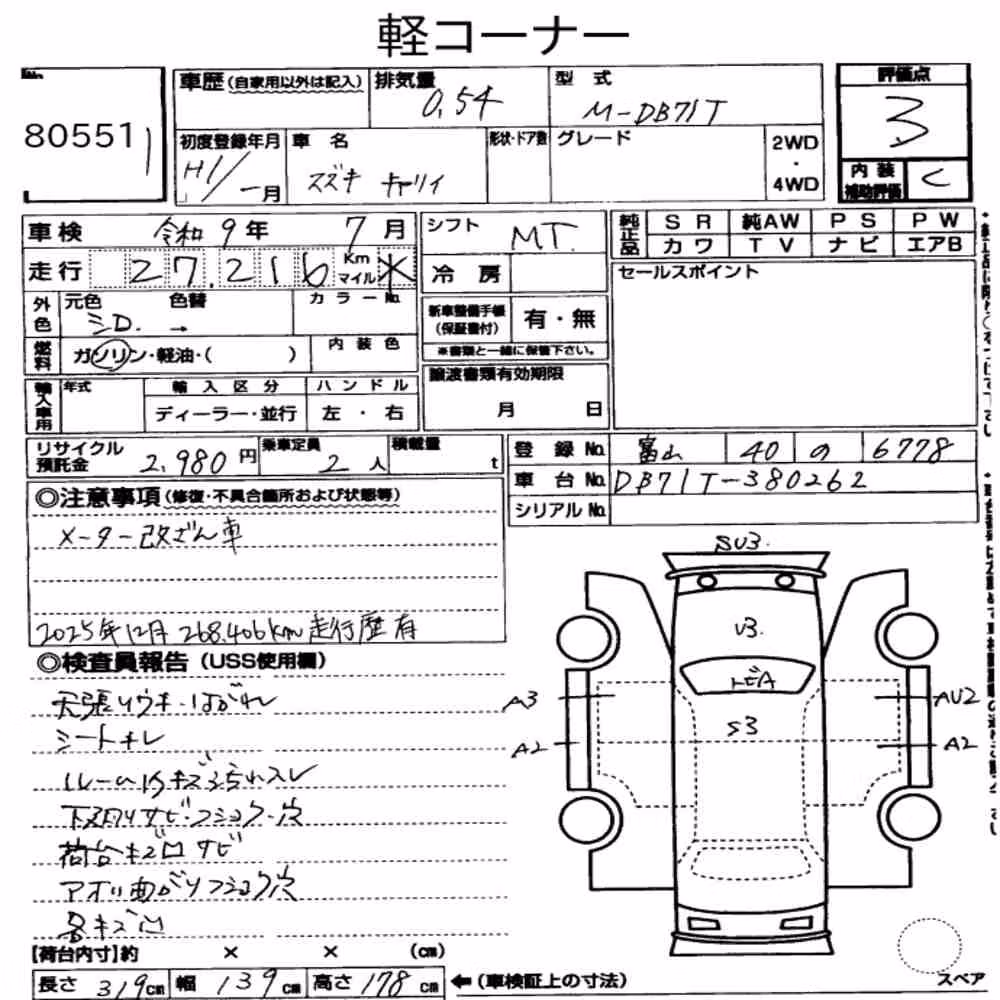 軽コーナー
No.
80551
車歴 (自家用以外は記入)
排気量
0.54
型式
M-DB71T
評価点
3
初度登録年月
H1/ 一月
車名
スズキ キャリイ
形状・ドア数
グレード
2WD
・
4WD
内装
補助評価
C
車検 令和 9年 7月
シフト
MT.
純正品
SR 純AW PS PW
カワ TV ナビ エアB
走行 27,216 Km マイル ※
冷房
セールスポイント
外色
元色
ミD. →
色替
カラーNo.
新車整備手帳
(保証書付)
有・無
※書類と一緒に保管下さい。
燃料
ガソリン・軽油・( )
内装色
譲渡書類有効期限
月 日
輸入車用
年式
輸入区分
ディーラー・並行
ハンドル
左・右
リサイクル
預託金
2,980円
乗車定員
2人
積載量
t
登録No.
富山 40 の 6778
車台No.
DB71T-380262
シリアルNo.
◎注意事項 (修復・不具合箇所および状態等)
メーター改ざん車
2025年12月 268,406km走行歴有
◎検査員報告 (USS使用欄)
天張リウキ・はがれ
シートキレ
ルーム内キズ
下廻りサビ・フショク・穴
荷台キズ凹サビ
アオリ曲がりフショク穴
各キズ凹
SU3.
U3.
トビA
S3
A3
A2
AU2
A2
【荷台内寸】約 × × (cm)
長さ 319cm 幅 139cm 高さ 178cm
←(車検証上の寸法)
スペア